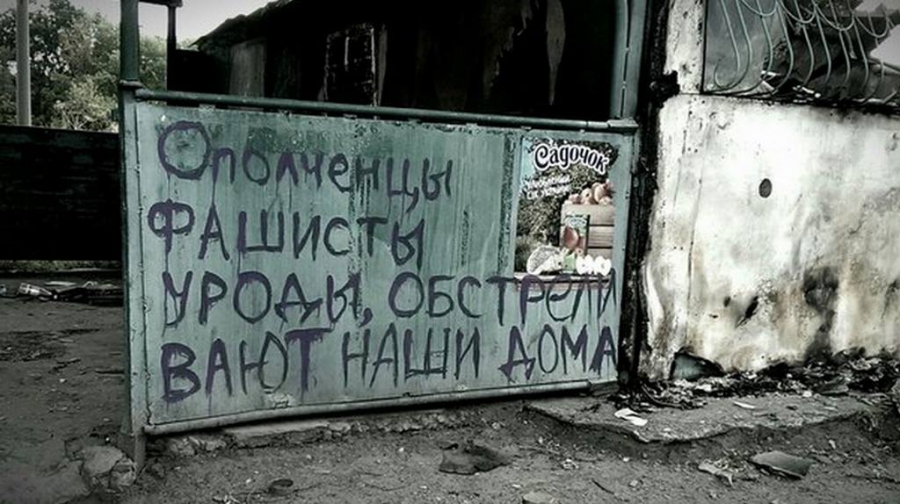 Ополченцы
ФАШИСТЫ
УРОДЫ, ОБСТРЕЛИ
ВАЮТ НАШИ ДОМА
Садочок